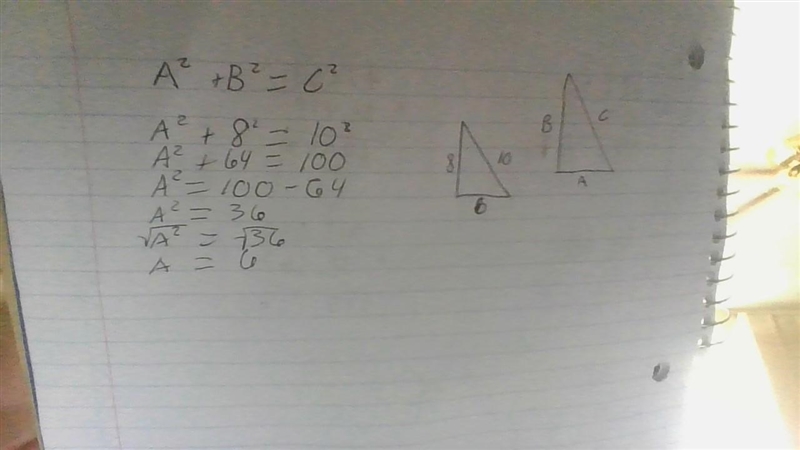 A² + B² = C²
A² + 8² = 10²
A² + 64 = 100
A² = 100 - 64
A² = 36
√A² = √36
A = 6
8
10
6
B
C
A